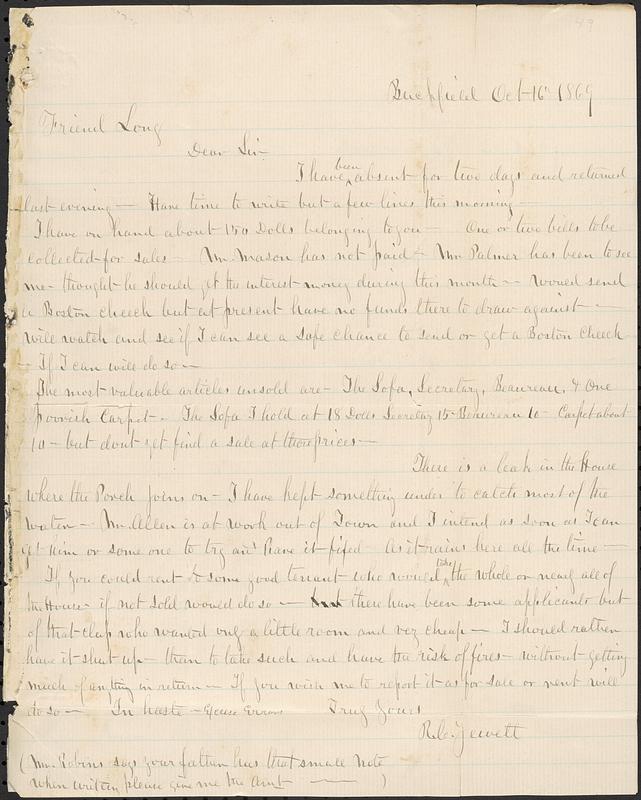 49
Buckfield Oct 16th 1869
Friend Long
Dear Sir
I have been absent for two days and returned
last evening — Have time to write but a few lines this morning —
I have on hand about 150 Dolls belonging to you — One or two bills to be
collected for sales — Mr. Mason has not paid & Mr Palmer has been to see
me — thought he should get the interest money during this month — Would send
a Boston check but at present have no funds there to draw against —
Will watch and see if I can see a safe chance to send or get a Boston Check
— If I can will do so —
The most valuable articles unsold are — The Sofa, Secretary, Beaureau, & One
Carpet — The Sofa I hold at 18 Dolls Secretary 15 — Beaureau 10 — Carpet about
10 — but dont get find a sale at those prices —
There is a leak in the House
where the Porch joins on — I have kept something under to catch most of the
water — Mr. Allen is at work out of Town and I intend as soon as I can
get him or some one to try and have it fixed — As it rains here all the time —
If you could rent to some good tenant who would take the whole or nearly all of
the House if not sold would do so — there have been some applicants but
of that class who wanted only a little room and very cheap — I should rather
have it shut up — than to take such and have the risk of fires — without getting
much of anything in return — If you wish me to report it as for sale or rent will
do so — In haste — Excuse Errors Truly Yours
R.C. Jewett
( Mr. Robins says your father has that small note
When writing please give me the Amt — )